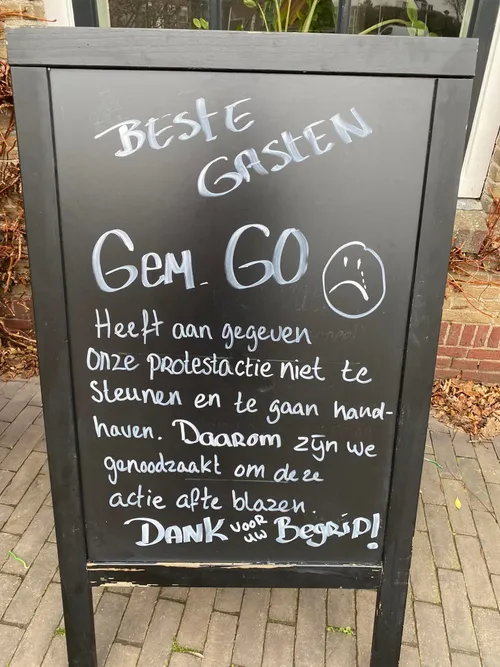 BEStE
GAStEN
Gem. GO
Heeft aan gegeven
Onze protestactie niet te
steunen en te gaan hand-
haven. Daarom zijn we
genoodzaakt om deze
actie af te blazen.
DANK VOOR UW Begrip!